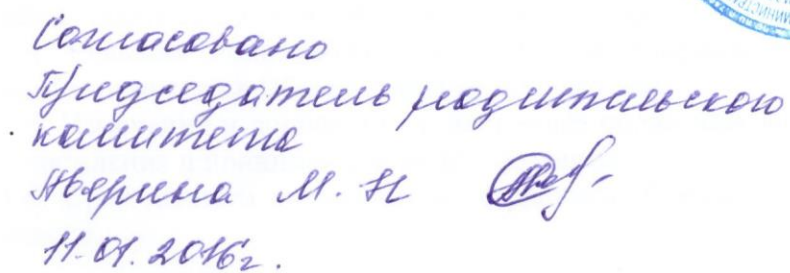 Согласовано
Председатель родительского
комитета
Аверина М. Н
11.01.2016г.